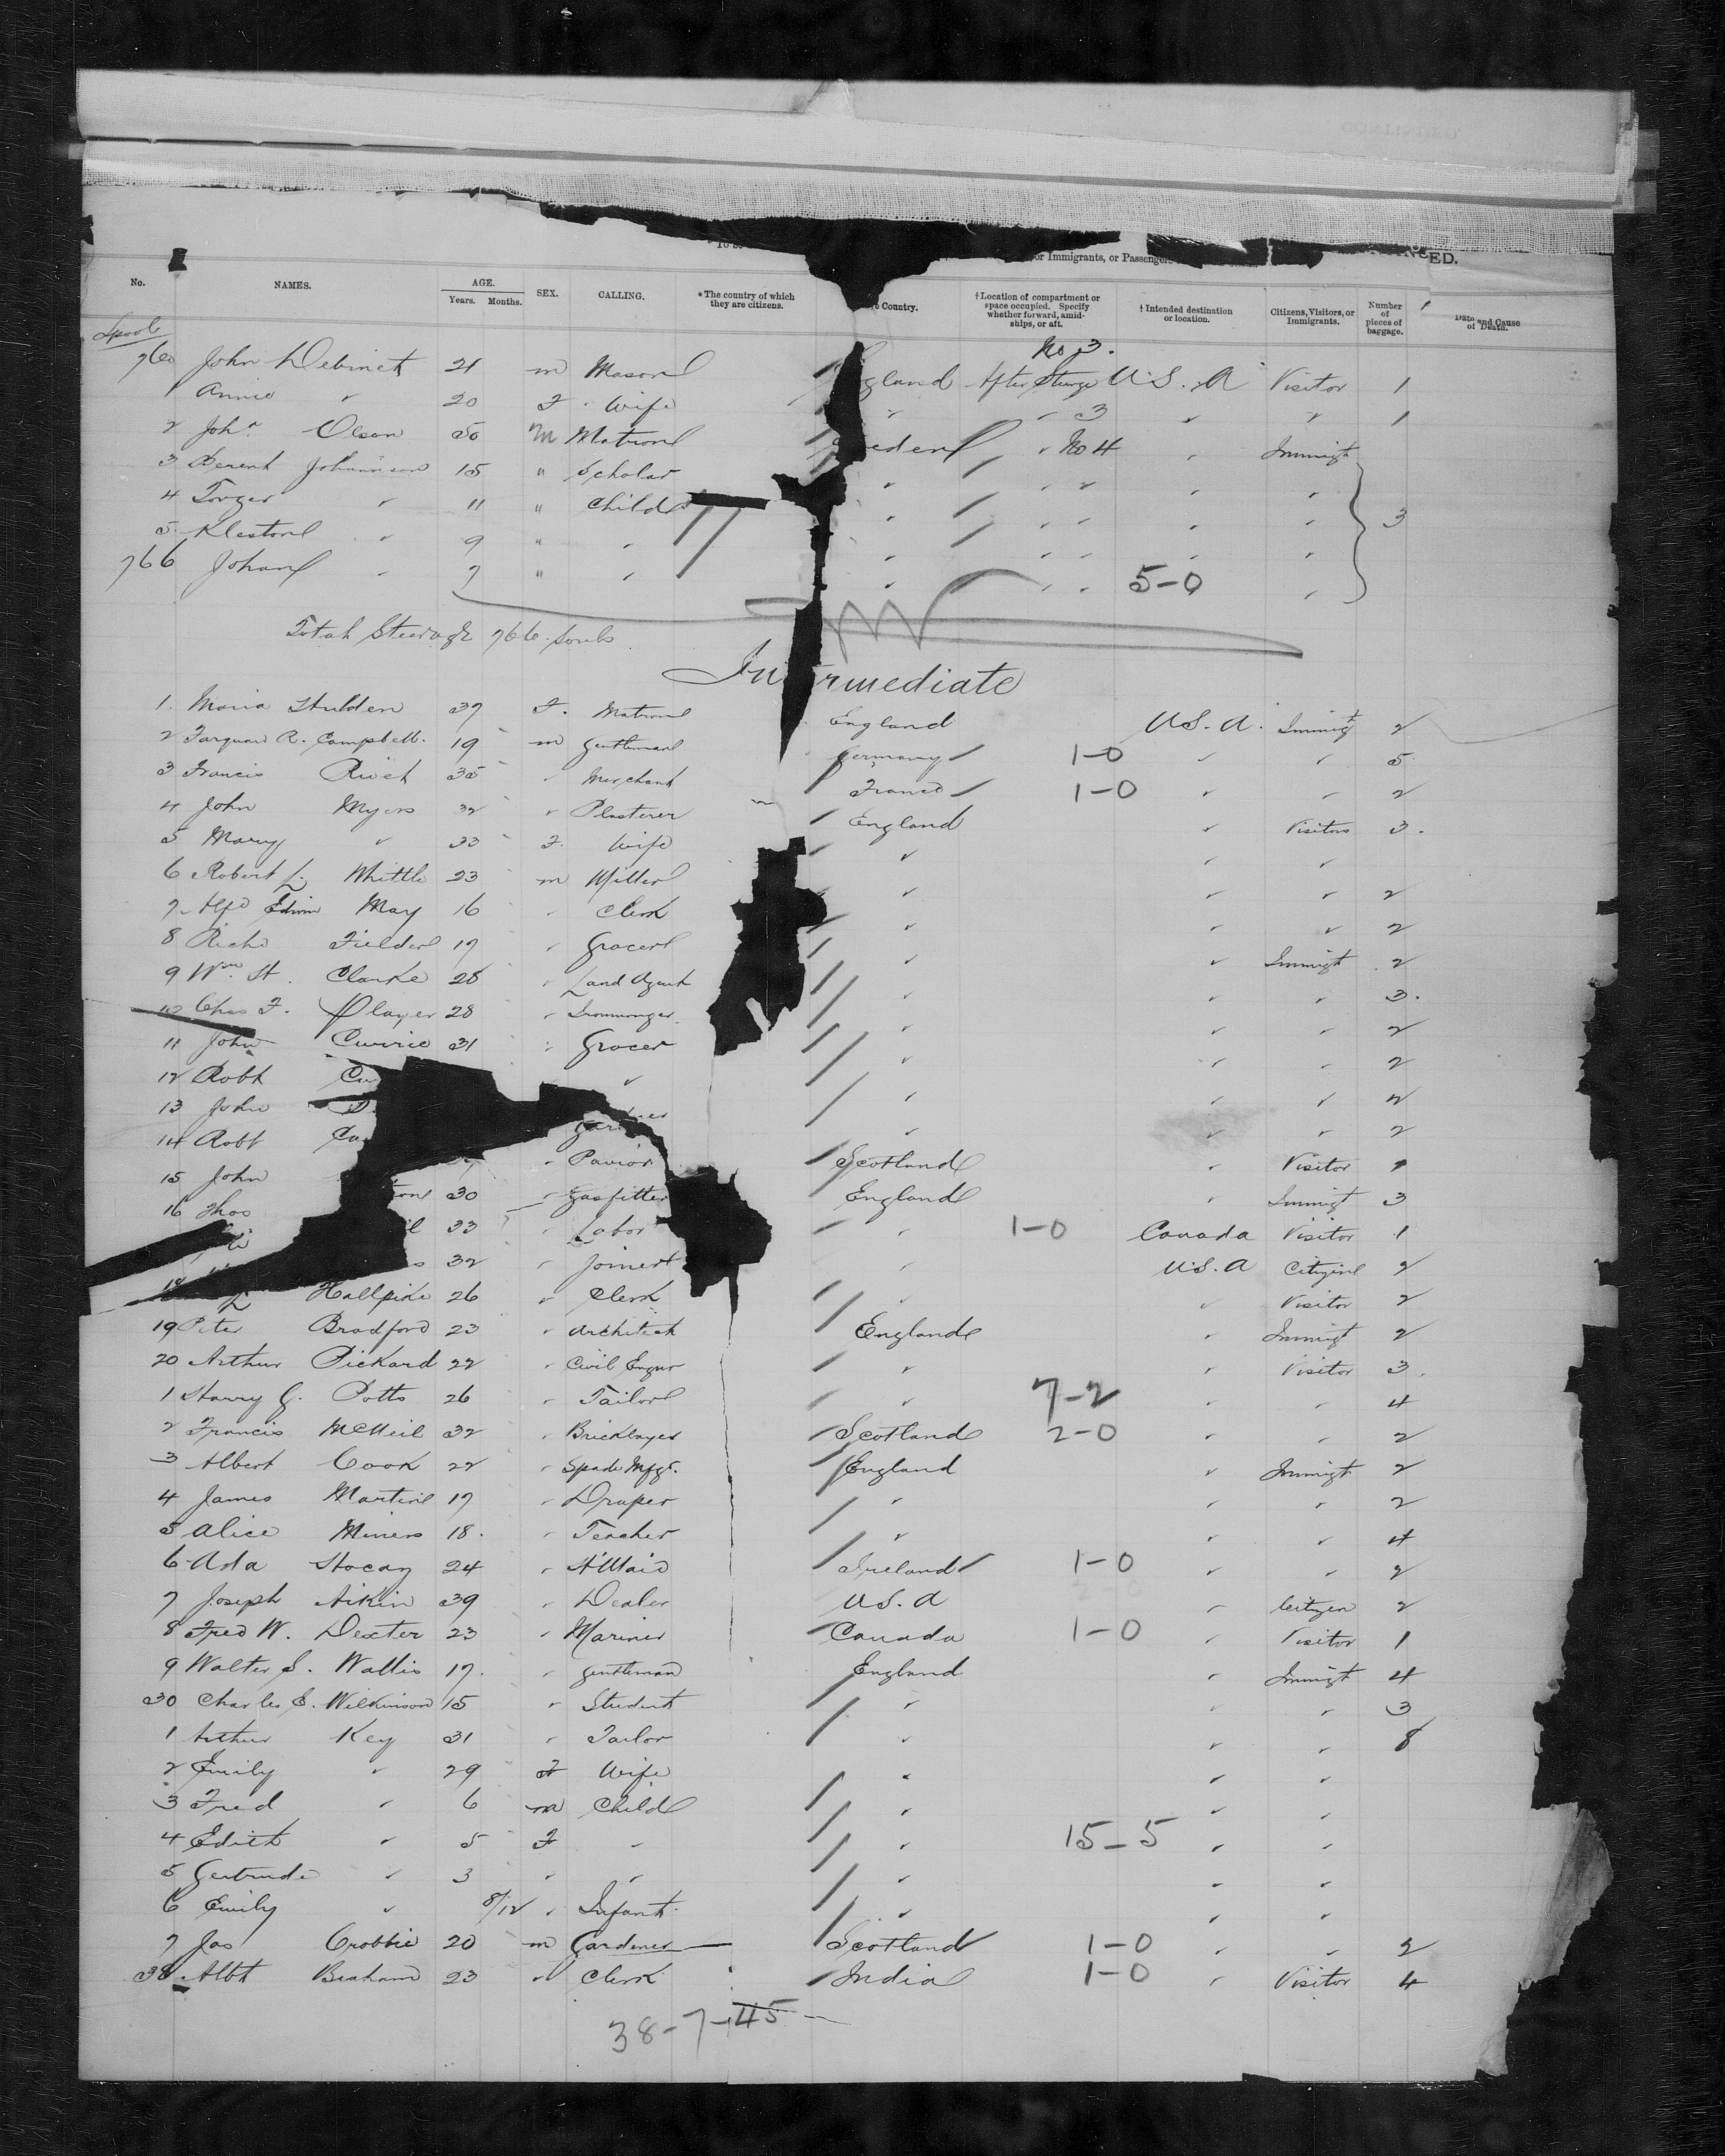 or Immigrants, or Passenger
ED.
No. NAMES. AGE. Years. Months. SEX. CALLING. * The country of which they are citizens. Country. † Location of compartment or space occupied. Specify whether forward, amidships, or aft. † Intended destination or location. Citizens, Visitors, or Immigrants. Number of pieces of baggage. Date and Cause of Death.
No 3.
760 John 21 m Mason gland After Steerge U.S.A Visitor 1
1 Annie " 20 F Wife " " 3 " " 1
2 Olson 50 m Matron eden " No 4 " Immigt
3 15 " Scholar " " "
4 " 11 " Child " " " " " 3
5 " 9 " " " " " " "
766 Johan " 7 " " " " " 5-0 "
Total Steerage 766 Souls
In rmediate
1. Maria 37 F. Matron England U.S.A. Immigt 2
2 R. Campbell. 19 m Gentleman Germany 1-0 " " 5
3 Francis 35 " Merchant France 1-0 " " 2
4 John Myers 32 " Plasterer England " Visitors 3.
5 Mary " 33 F. Wife " " "
6 Robert L. Whittle 23 m Miller " " " 2
7 Alfd Edwin May 16 " Clerk " " " 2
8 Richd Fielder 17 " Grocer " " Immigt 2
9 Wm H. Clarke 28 " Land Agent " " " 3.
10 Chas F. Player 28 " Ironmonger " " " 2
11 John Currie 31 " Grocer " " " 2
12 Robt Cu " " " " 2
13 John " " " 2
14 Robt Ca Pavior Scotland " Visitor 1
15 John 30 " Gasfitter England " Immigt 3
16 Thos 33 " Labor " 1-0 Canada Visitor 1
32 " Joiner " U.S.A Citizen 2
18 Hallpike 26 " Clerk " " Visitor 2
19 Peter Bradford 23 " Architect England " Immigt 2
20 Arthur Pickard 22 " Civil Engnr " " Visitor 3.
1 Harry G. Potts 26 " Tailor " 7-2 " " 4
2 Francis McNeil 32 " Bricklayer Scotland 2-0 " " 2
3 Albert Cook 22 " Spade Mfgr. England " Immigt 2
4 James Martin 17 " Draper " " " 2
5 Alice Miners 18. " Teacher " " " 4
6 Ada 24 " H'Maid Ireland 1-0 " " 2
7 Joseph Aikin 39 " Dealer U.S.A " Citizen 2
8 Fred W. Dexter 23 " Mariner Canada 1-0 " Visitor 1
9 Walter S. Wallis 17. " Gentleman England " Immigt 4
30 Charles E. Wilkinson 15 " Student " " " 3
1 Arthur Key 31 " Tailor " " " 8
2 Emily " 29 F Wife " " "
3 Fred " 6 m Child " " "
4 Edith " 5 F " " 15-5 " "
5 Gertrude " 3 " " " " "
6 Emily " 8/12 " Infant " " "
7 Jas Crobbie 20 m Gardener Scotland 1-0 " " 2
38 Albt 23 " Clerk India 1-0 " Visitor 4
38-7-45